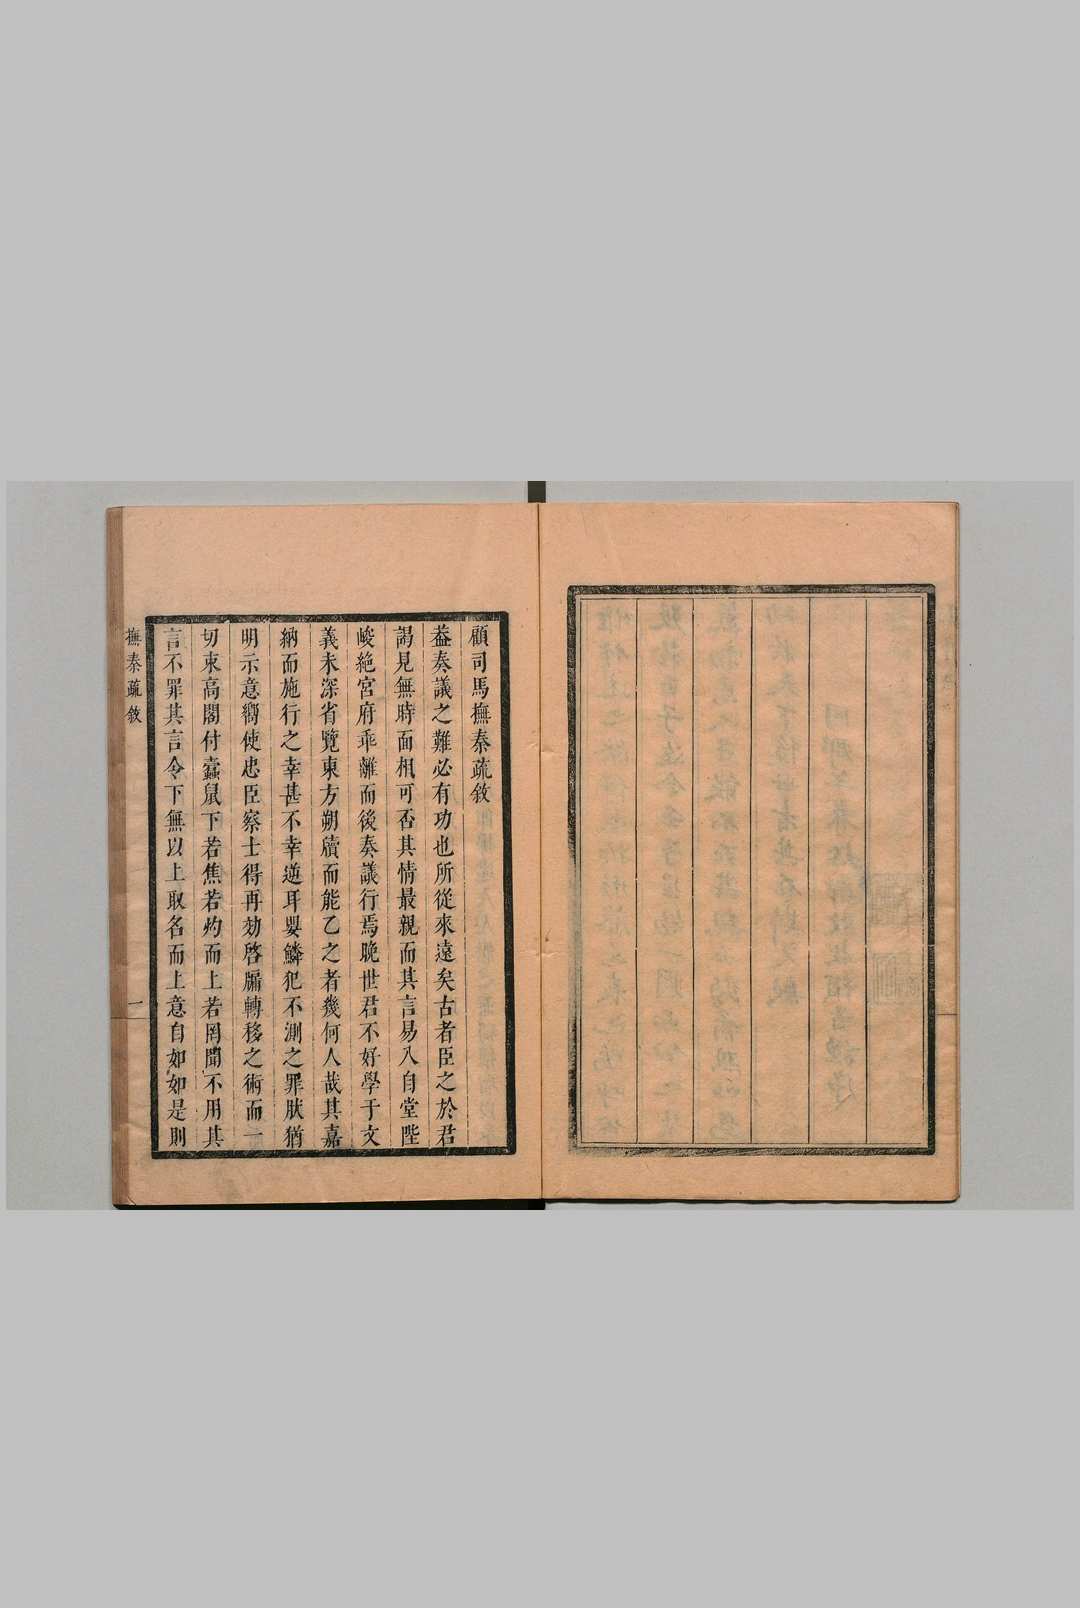 顧司馬撫秦疏敘
葢奏議之難必有功也所從來遠矣古者臣之於君
謁見無時面相可否其情最親而其言易入自堂陛
峻絕宮府乖離而後奏議行焉晚世君不好學于文
義未深省覽東方朔牘而能乙之者幾何人哉其嘉
納而施行之幸甚不幸逆耳嬰鱗犯不測之罪肰猶
明示意嚮使忠臣察士得再効啓牖轉移之術而一
切束高閣付蠹鼠下若焦若灼而上若罔聞不用其
言不罪其言令下無以上取名而上意自如如是則
撫秦疏敘
一